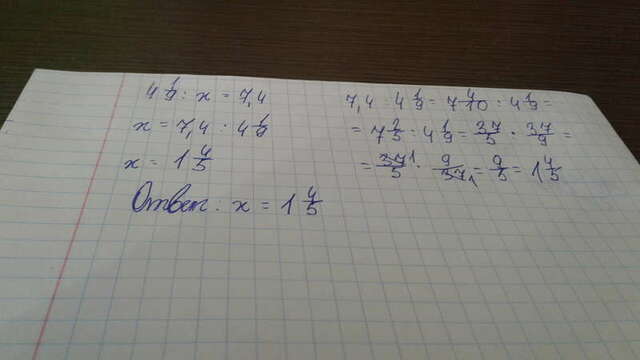 4 1/9 : x = 7,4
x = 7,4 : 4 1/9
x = 1 4/5
Ответ: x = 1 4/5
7,4 : 4 1/9 = 7 4/10 : 4 1/9 =
= 7 2/5 : 4 1/9 = 37/5 · 37/9 =
= 37/5 1 · 9/37 1 = 9/5 = 1 4/5